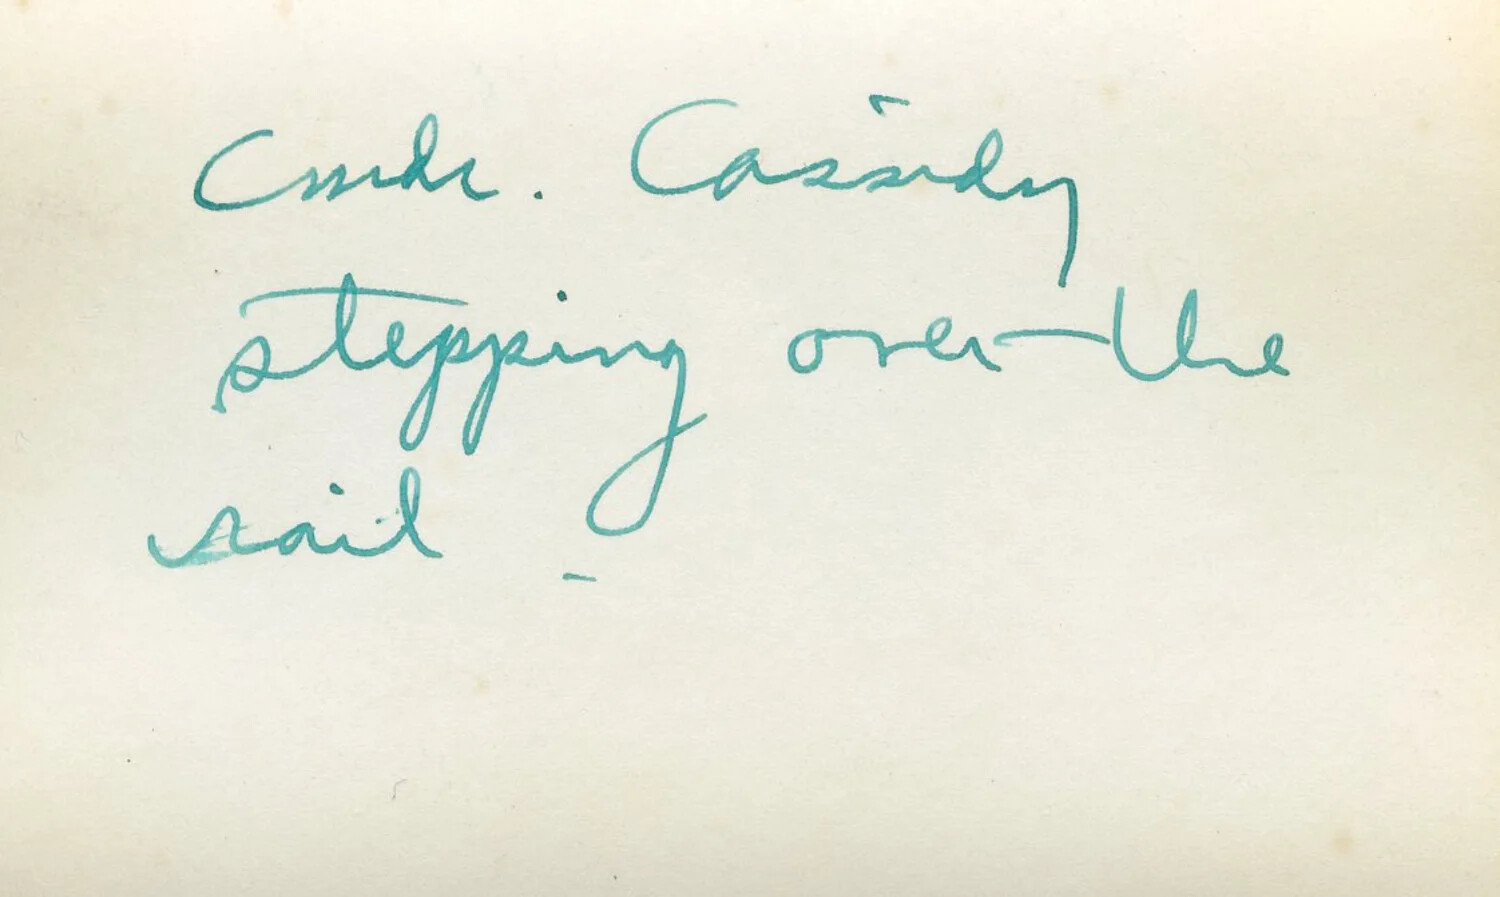 Cmdr. Cassidy
stepping over the
rail -